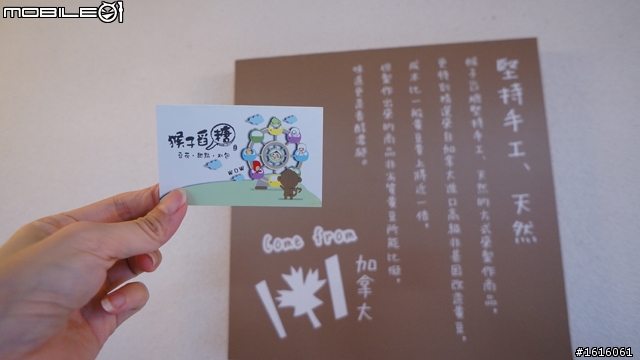 mobile01
猴子舀糖
豆花・甜點・冰包
WOW
堅持手工、天然
猴子舀糖堅持手工、天然的方式來製作商品，
更特別挑選來自加拿大進口高級非基因改造黃豆，
成本比一般黃豆貴上將近一倍，
但製作出來的商品非消費黃豆所能比擬，
味道更是香醇濃郁。
Come from
加拿大
#1616061